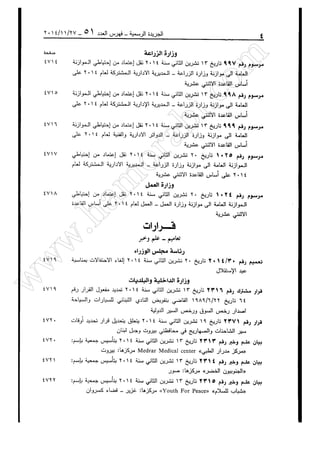 ٤ الجريدة الرسمية - فهرس العدد ٥١ - ٢٠١٤/١١/٢٧
صفحة
وزارة الزراعة
مرسوم رقم ٩٩٧ تاريخ ١٣ تشرين الثاني سنة ٢٠١٤ نقل إعتماد من إحتياطي الموازنة ٤٧١٤
العامة الى موازنة وزارة الزراعة - المديرية الادارية المشتركة لعام ٢٠١٤ على
أساس القاعدة الاثني عشرية
مرسوم رقم ٩٩٨ تاريخ ١٣ تشرين الثاني سنة ٢٠١٤ نقل إعتماد من إحتياطي الموازنة ٤٧١٥
العامة الى موازنة وزارة الزراعة - المديرية الإدارية المشتركة لعام ٢٠١٤ على
أساس القاعدة الاثني عشرية
مرسوم رقم ٩٩٩ تاريخ ١٣ تشرين الثاني سنة ٢٠١٤ نقل إعتماد من إحتياطي الموازنة ٤٧١٦
العامة الى موازنة وزارة الزراعة - الدوائر الادارية والفنية لعام ٢٠١٤ على
أساس القاعدة الاثني عشرية
مرسوم رقم ١٠٢٥ تاريخ ٢٠ تشرين الثاني سنة ٢٠١٤ نقل إعتماد من إحتياطي ٤٧١٧
الموازنة العامة الى موازنة وزارة الزراعة - المديرية الادارية المشتركة لعام
٢٠١٤ على أساس القاعدة الاثني عشرية
وزارة العمل
مرسوم رقم ١٠٢٤ تاريخ ٢٠ تشرين الثاني سنة ٢٠١٤ نقل إعتماد من إحتياطي ٤٧١٨
الموازنة العامة الى موازنة وزارة العمل - العمل لعام ٢٠١٤ على أساس القاعدة
الاثني عشرية
قــرارات
تعاميم - علم وخبر
رئاسة مجلس الوزراء
تعميم رقم ٢٠١٤/٣٠ تاريخ ٢٠ تشرين الثاني سنة ٢٠١٤ إلغاء الاحتفالات بمناسبة ٤٧١٩
عيد الإستقلال
وزارة الداخلية والبلديات
قرار مشترك رقم ٢٣١٦ تاريخ ١٣ تشرين الثاني سنة ٢٠١٤ تمديد مفعول القرار رقم ٤٧١٩
٦٤ تاريخ ١٩٨٦/٦/٢ القاضي بتفويض النادي اللبناني للسيارات والسياحة
اصدار رخص السوق ورخص السير الدولية
قرار رقم ٢٣٧١ تاريخ ١٩ تشرين الثاني سنة ٢٠١٤ يتعلق بتعديل قرار تحديد أوقات ٤٧٢٠
سير الشاحنات والصهاريج في محافظتي بيروت وجبل لبنان
بيان علم وخبر رقم ٢٣١٣ تاريخ ١٣ تشرين الثاني سنة ٢٠١٤ بتأسيس جمعية بإسم: ٤٧٢٠
«مركز مدرار الطبي» Medrar Medical center مركزها: بيروت
بيان علم وخبر رقم ٢٣١٤ تاريخ ١٣ تشرين الثاني سنة ٢٠١٤ بتأسيس جمعية بإسم: ٤٧٢١
«الجنوبيون الخضر» مركزها: صور
بيان علم وخبر رقم ٢٣١٥ تاريخ ١٣ تشرين الثاني سنة ٢٠١٤ بتأسيس جمعية بإسم: ٤٧٢٢
«شباب للسلام» «Youth For Peace» مركزها: غزير - قضاء كسروان